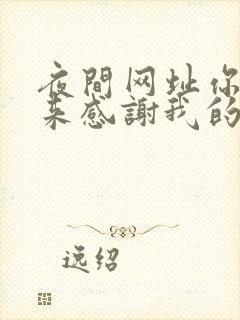 夜間网址你
来感謝我的
逸绍